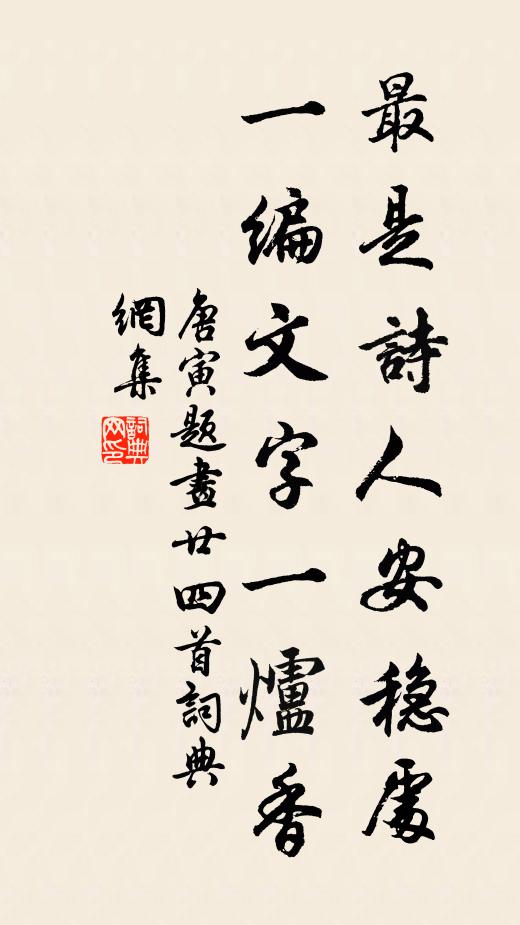 最是詩人安穩處
一編文字一爐香
唐寅題畫廿四首詞典
網集
詞典
网印